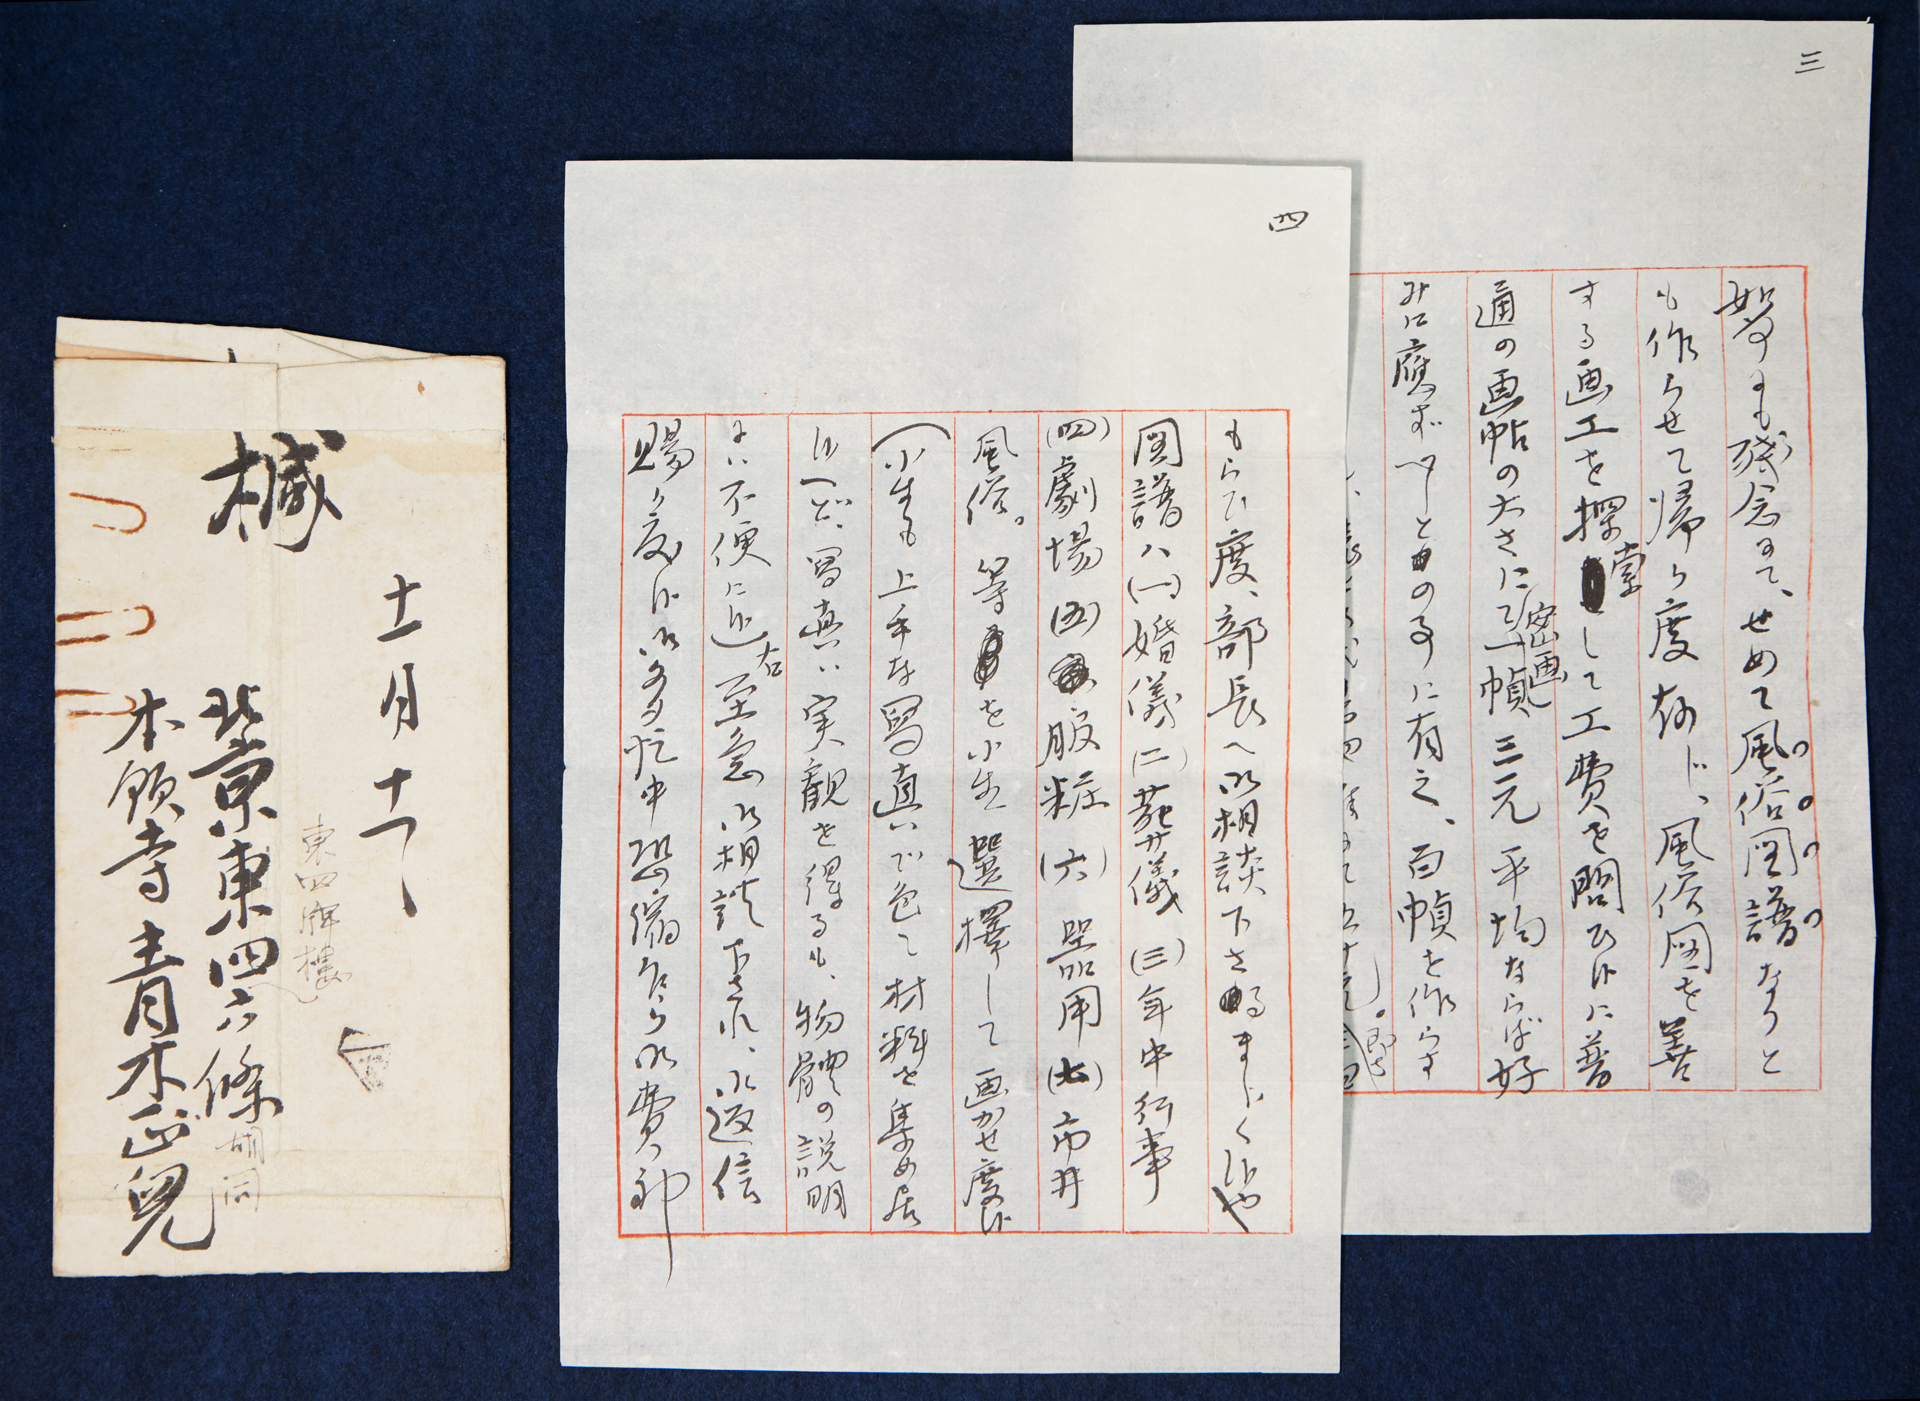 三
も残念にて、せめて風俗図譜なりと
も作らせて帰り度存じ、風俗図を善
する画工を探索して工費を問ひ候に普
通の画帖の大さにて密画一幀、三元平均ならば好
みに應ずべしとの事に有之、百幀を作らす
四
もらひ度、部長へ御相談下さるまじく候や
図譜ハ(一)婚儀(二)葬儀(三)年中行事
(四)劇場(五)服粧(六)器用(七)市井
風俗。等を小生選擇して画かせ度候
(小生も上手な写真いで色々材料を集め居
候へど、写真い実観を得るも、物體の説明
にい不便に候 右至急御相談下され、御返信
賜り度候 御多忙中恐縮ながら御費神
緘
十一月十一
東四牌樓
北京東四六條胡同
本願寺 青木正兒